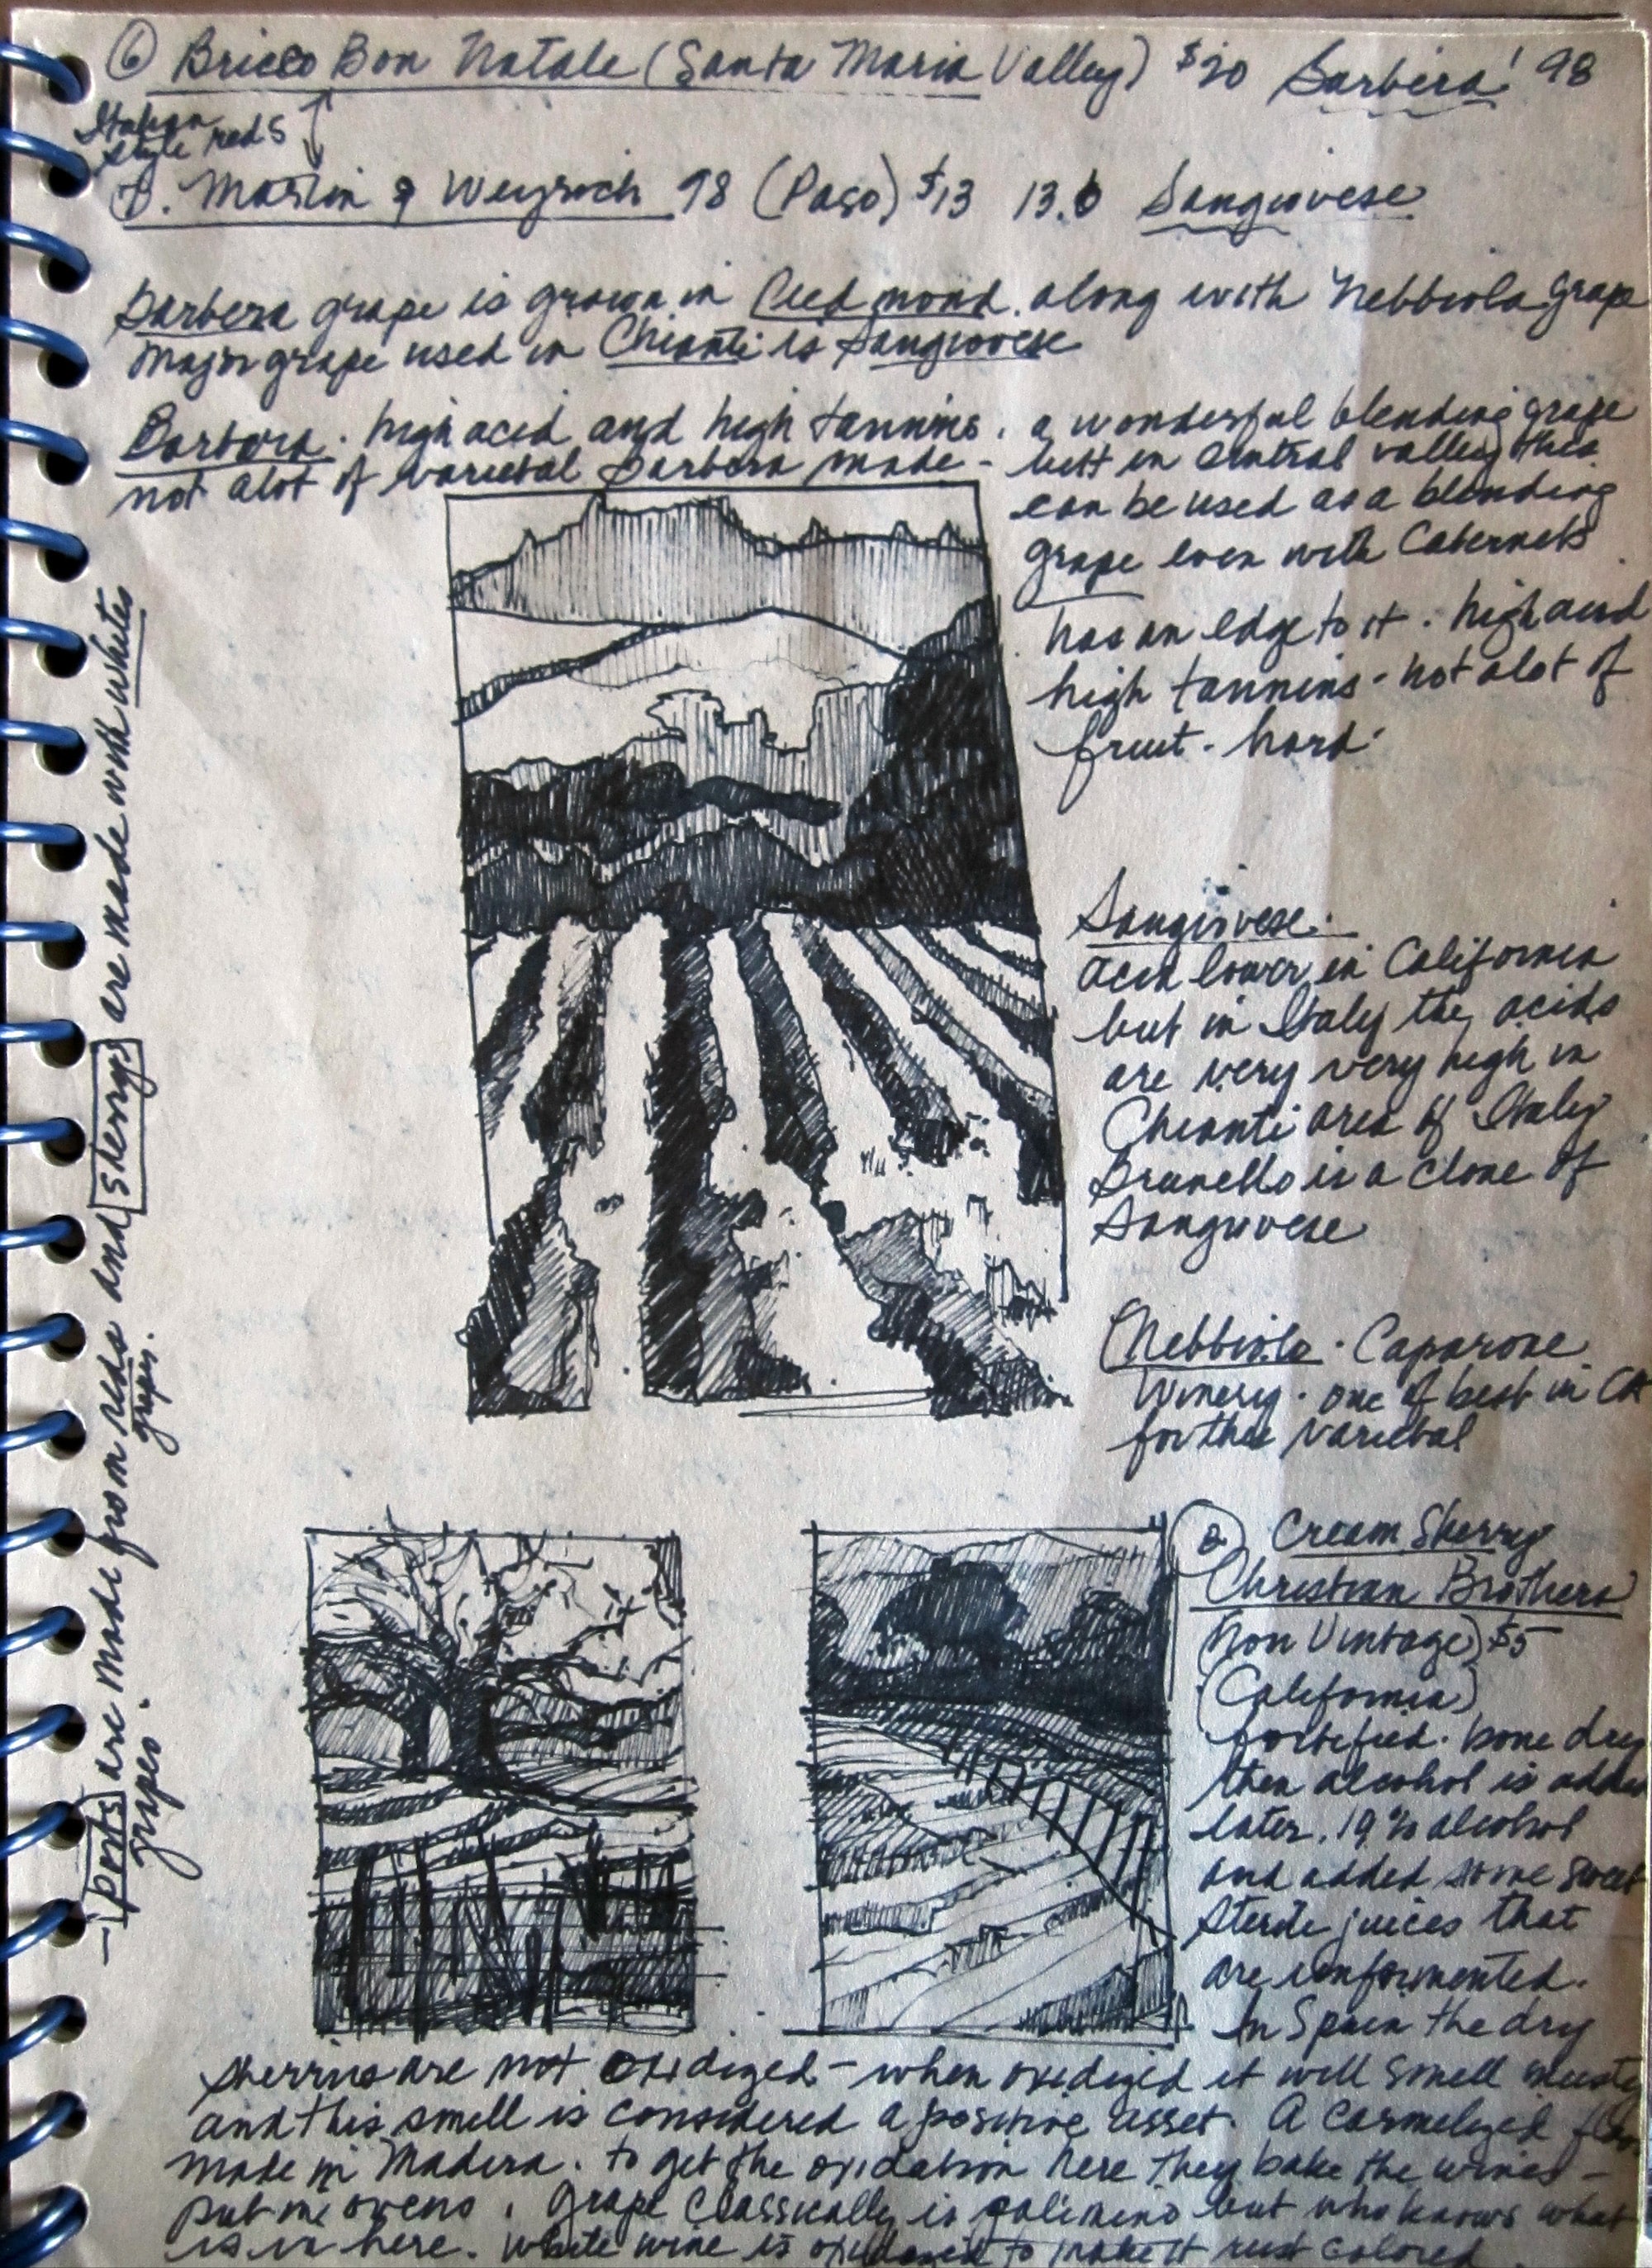 ⑥ Bricco Bon Natale (Santa Maria Valley) $20 Barbera '98
Italian
style reds
7. Martin & Weyrich 98 (Paso) $13 13.6 Sangiovese
Barbera grape is grown in Piedmond. along with Nebbiola grape
Major grape used in Chianti is Sangiovese
Barbera. high acid and high tannins. a wonderful blending grape
not alot of varietal Barbera made - but in Central valley this
can be used as a blending
grape even with Cabernets
has an edge to it. high acid
high tannins. not alot of
fruit. hard.
Sangiovese:
acid lower in California
but in Italy the acids
are very very high in
Chianti area of Italy
Brunello is a clone of
Sangiovese
Nebbiolo. Caparone
Winery. one of best in CA
for this varietal
8 Cream Sherry
Christian Brothers
(Non Vintage) $5
(California)
fortified. bone dry
then alcohol is added
later. 19% alcohol
and added some sweet
sterile juices that
are unfermented.
In Spain the dry
sherries are not oxidized - when oxidized it will smell musty
and this smell is considered a positive asset. A Carmelized
made in Madera. to get the oxidation here they bake the wines -
put in ovens. Grape classically is palimino but who knows what
is in here. White wine is oxidized to make it rust colored
- ports are made from reds and sherrys are made with whites
grapes. grapes.